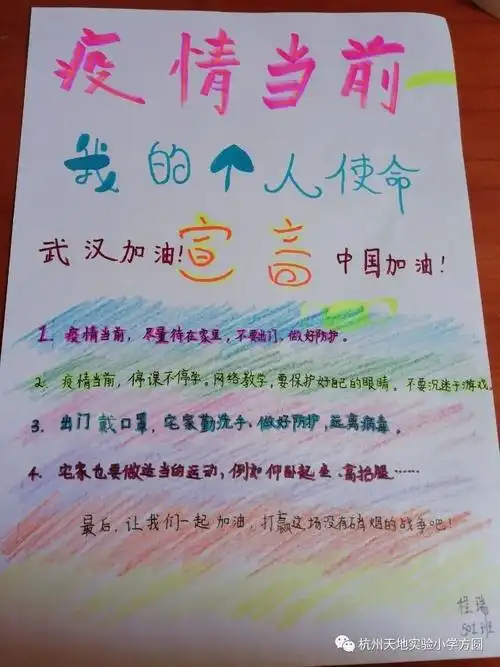 疫情当前
我的个人使命
武汉加油! 宣言 中国加油!
1. 疫情当前，尽量待在家里，不要出门，做好防护。
2. 疫情当前，停课不停学。网络教学，要保护好自己的眼睛。不要沉迷于游戏。
3. 出门戴口罩，宅家勤洗手，做好防护，远离病毒。
4. 宅家也要做适当的运动，例如仰卧起坐、高抬腿……
最后，让我们一起加油，打赢这场没有硝烟的战争吧!
程瑞
501班
杭州天地实验小学方圆